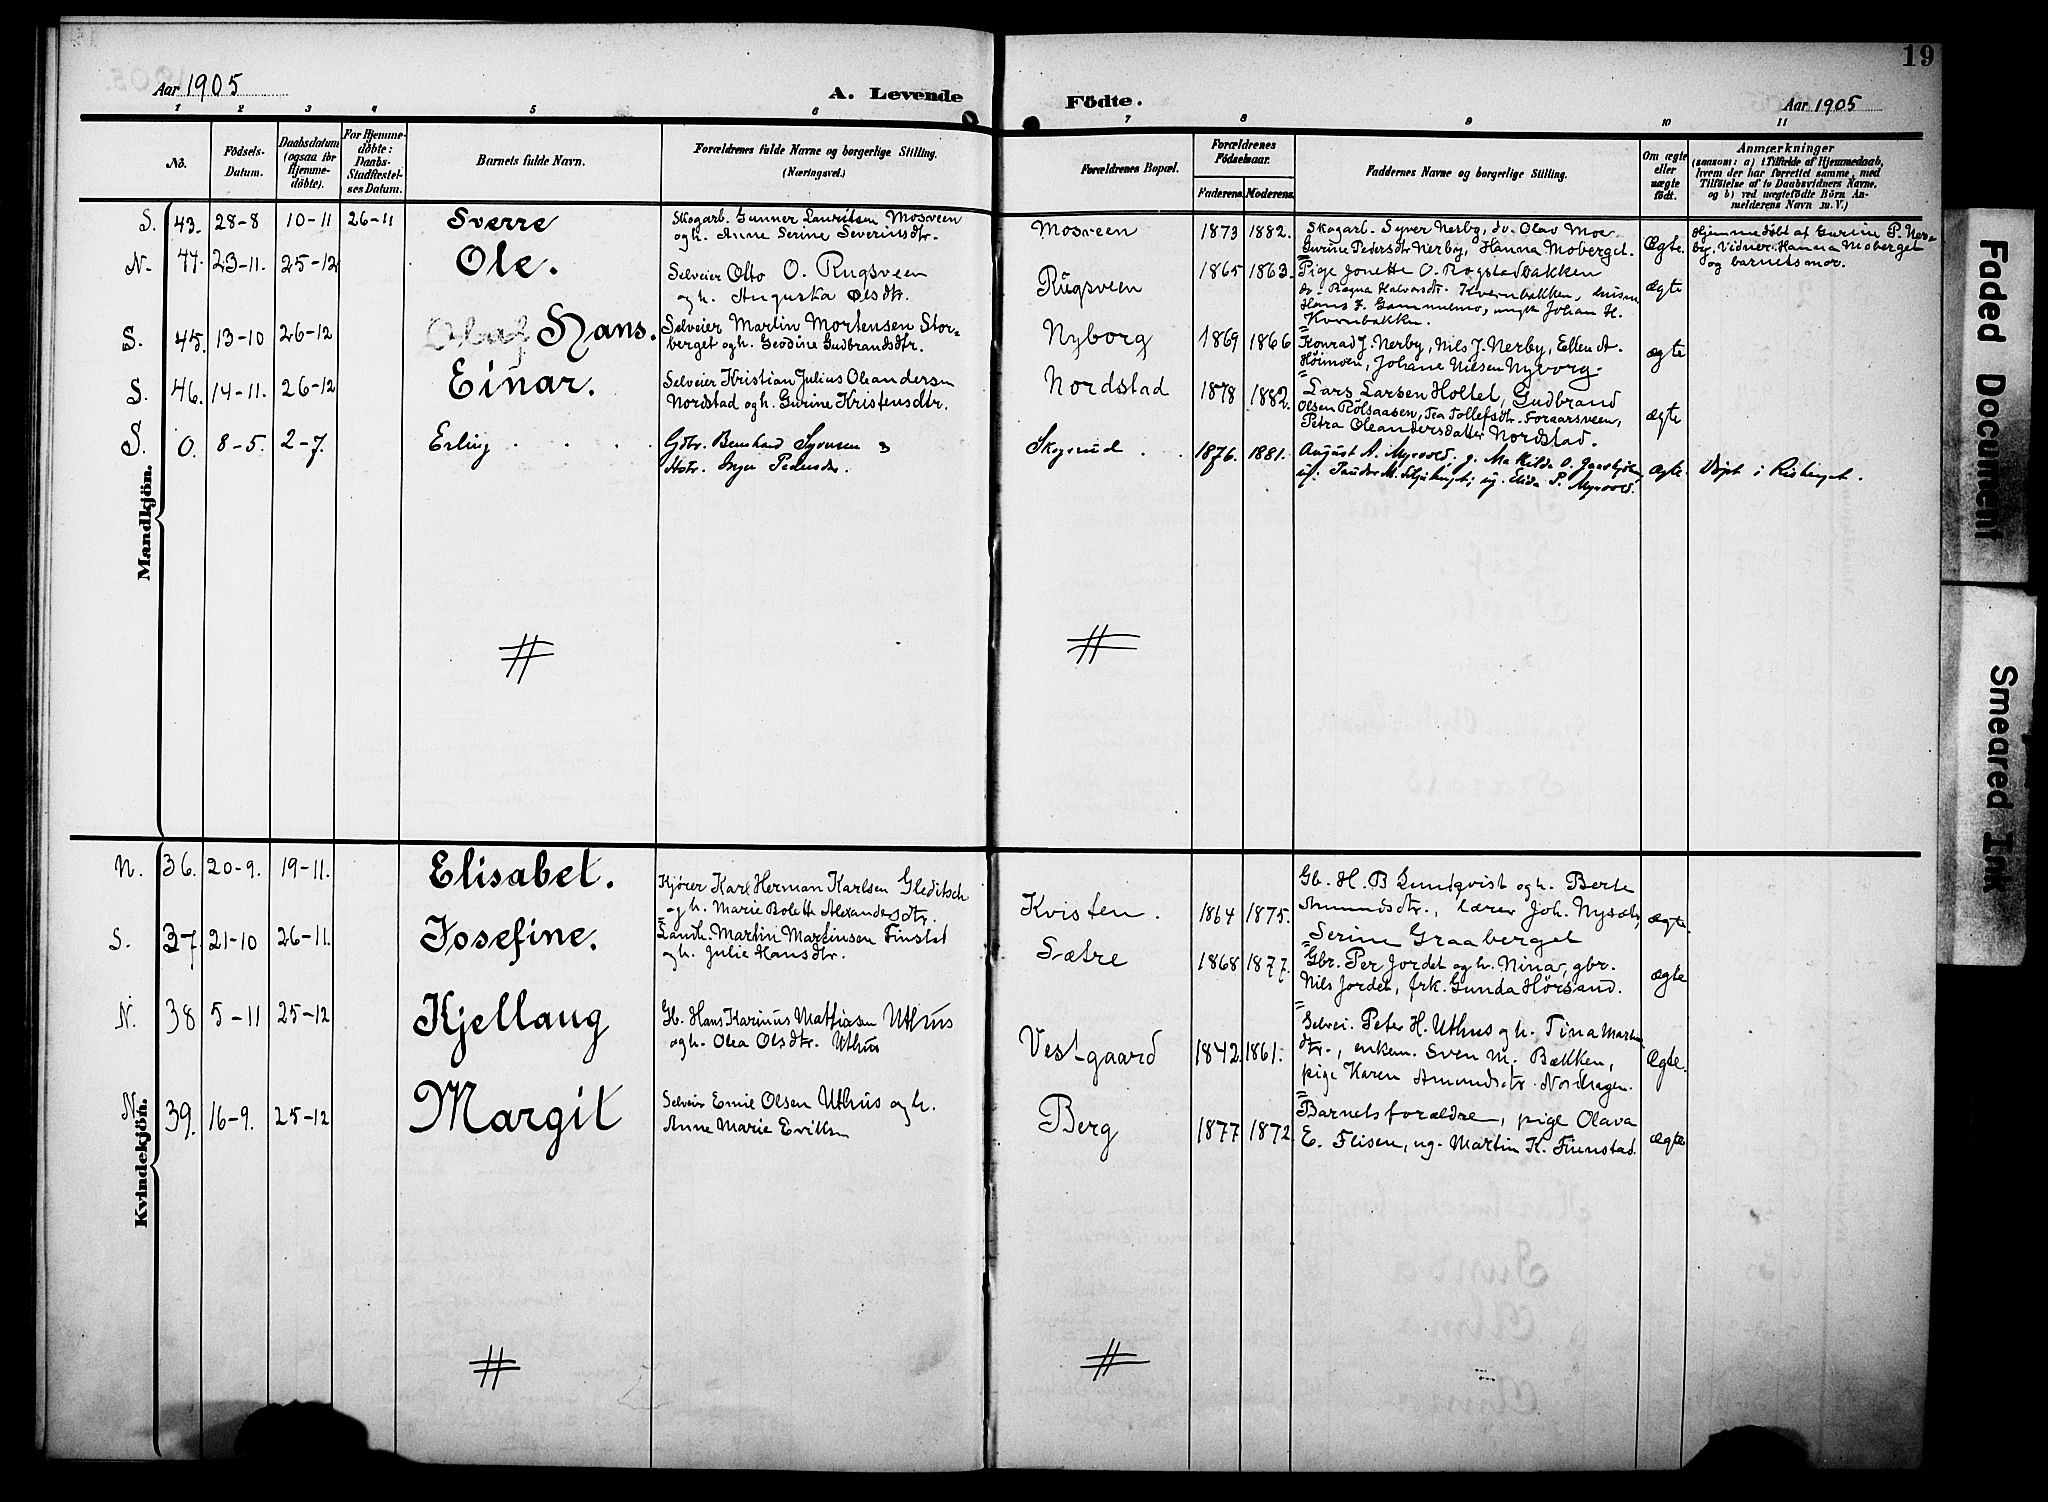 19
Aar 1905
A. Levende
Födte.
Aar 1905
1 2 3 4 5 6 7 8 9 10 11
No.
Födsels-
Datum.
Daabsdatum
(ogsaa for
Hjemme-
döbte).
For Hjemme-
döbte:
Daabs-
Stadfæstel-
ses Datum.
Barnets fulde Navn.
Forældrenes fulde Navne og borgerlige Stilling.
(Næringsvei.)
Forældrenes Bopæl.
Forældrenes
Födselsaar.
Faderens. Moderens.
Faddernes Navne og borgerlige Stilling.
Om ægte
eller
uægte
födt.
Anmærkninger
(saasom: a) i Tilfælde af Hjemmedaab,
hvem der har forrettet samme, med
Tilföielse af to Daabsvidners Navne,
og b) ved uægtefödte Börn An-
melderens Navn m. V.)
Mandkjön.
S. 43. 28-8 10-11 26-11 Sverre
Skogarb. Gunner Lauritsen Mosveen
og h. Anne Serine Severinsdtr.
Mosveen 1873 1882.
Skogarb. Syver Nerby, do. Olav Moe.
Gurine Pedersdtr Nerby, Hanna Moberget.
Ægte.
Hjemmedøbt af Gurine P. Ner-
by, Vidner: Hanna Moberget
og barnets mor.
N. 44. 23-11. 25-12 Ole.
Selveier Otto O. Rugsveen
og h. Augusta Olsdtr.
Rugsveen 1865 1863.
Pige Jonette O. Rogstadbakken
do. Ragna Halvorsdtr. Kvernbakken,
Hans F. Gammelmo, ungk Johan H.
Kvernbakken.
ægte
S. 45. 13-10 26-12 Olaf Hans.
Selveier Martin Mortensen Stor-
berget og h. Geodine Gudbrandsdtr.
Nyborg 1869 1866
Konrad J. Nerby, Nils J. Nerby, Ellen A.
Høimoen, Johane Nilsen Nyborg.
ægte
S. 46. 14-11. 26-12 Einar.
Selveier Kristian Julius Oleandersen
Nordstad og h. Gurine Kristensdtr.
Nordstad 1878 1882.
Lars Larsen Holtet, Gudbrand
Olsen Rølsaasen, Tea Tollefsdtr. Foraarsveen,
Petra Oleandersdatter Nordstad.
ægte
S. 0. 8-5. 2-7. Erling
Gbr. Bernhard Syversen
Hstr. Inger Pedersdtr.
Skogrud 1876. 1881.
August A. Myrvold, g. Matilda O.
Elida P. Myrvold.
ægte. Døpt i Risberget.
Kvindekjön.
N. 36. 20-9. 19-11. Elisabet.
Kjører Karl Herman Karlsen Gleditsch
og h. Marie Bolette Alexandersdtr.
Kvisten. 1864 1875.
Gb. H. B Lundqvist og h. Berte
Amundsdtr., lærer Joh. Nysæter,
Serine Graaberget
ægte.
S. 37. 21-10 26-11. Josefine.
Landh. Martin Martinsen Finstad
og h. Julie Hansdtr.
Sætre 1868 1877.
Gbr. Per Jordet og h. Nina, gbr.
Nils Jordet, frk. Gunda Hørsand.
ægte
N. 38 5-11 25-12 Kjellaug
Gb. Hans Karinus Mathiasen Uthus
og h. Olea Olsdtr. Uthus
Vestgaard 1842. 1861.
Selvei. Peter H. Uthus og h. Tina Martin
dtr., enkem. Sven M. Bækken,
pige Karen Amundsdtr. Nordhagen.
Ægte.
N. 39. 16-9. 25-12 Margit
Selveier Emil Olsen Uthus og h.
Anne Marie Eriksen
Berg 1877 1872
Barnets forældre, pige Olava
E. Flisen, ug. Martin K. Finnstad.
ægte
Faded Document
Smeared Ink